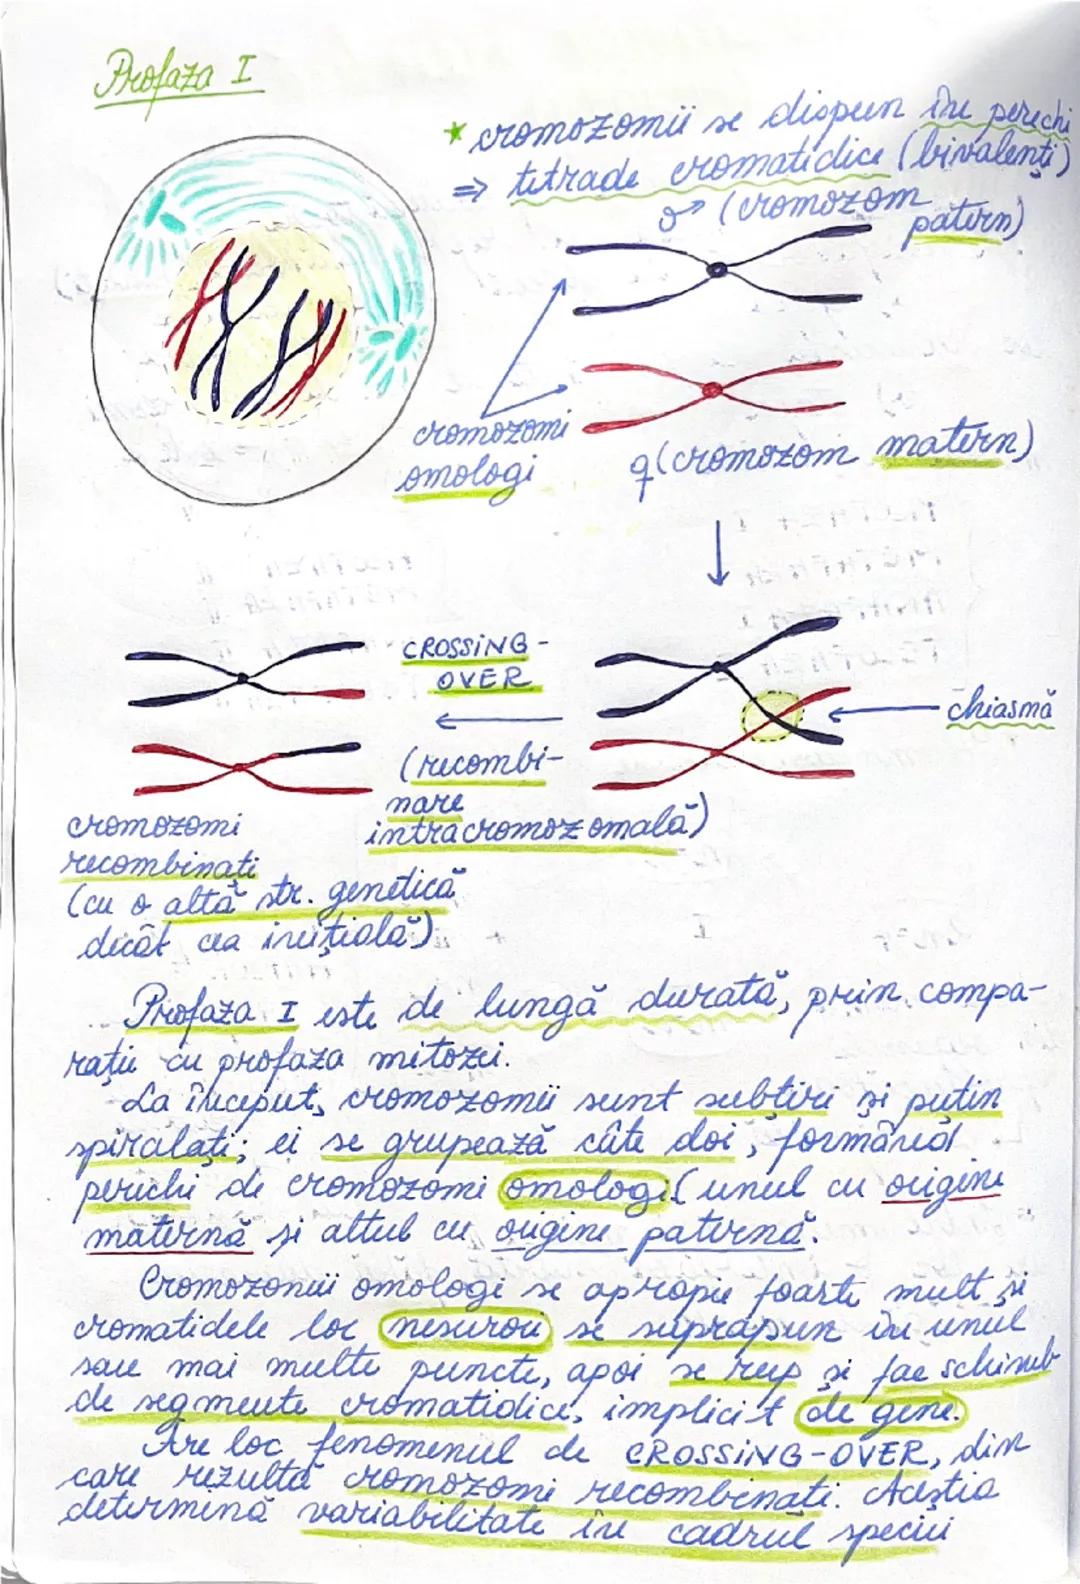 Profaza I
* cromozomii se dispun în perechi
⇒ tetrade cromatidice (bivalenți)
♂ (cromozom
patern)
cromozomi
omologi
♀ (cromozom matern)
CROSSING-
OVER
chiasmă
(recombi-
nare
intracromozomală)
cromozomi
recombinați
(cu o altă str. genetică
decât cea inițială)
Profaza I este de lungă durată, prin compa-
rație cu profaza mitozei.
La început, cromozomii sunt subțiri și puțin
spiralați; ei se grupează câte doi, formând
perechi de cromozomi omologi (unul cu origine
maternă și altul cu origine paternă.
Cromozomii omologi se apropie foarte mult și
cromatidele lor nesurori se suprapun în unul
sau mai multe puncte, apoi se rup și fac schimb
de segmente cromatidice, implicit de gene.
Are loc fenomenul de CROSSING-OVER, din
care rezultă cromozomi recombinați. Aceștia
determină variabilitate în cadrul speciei